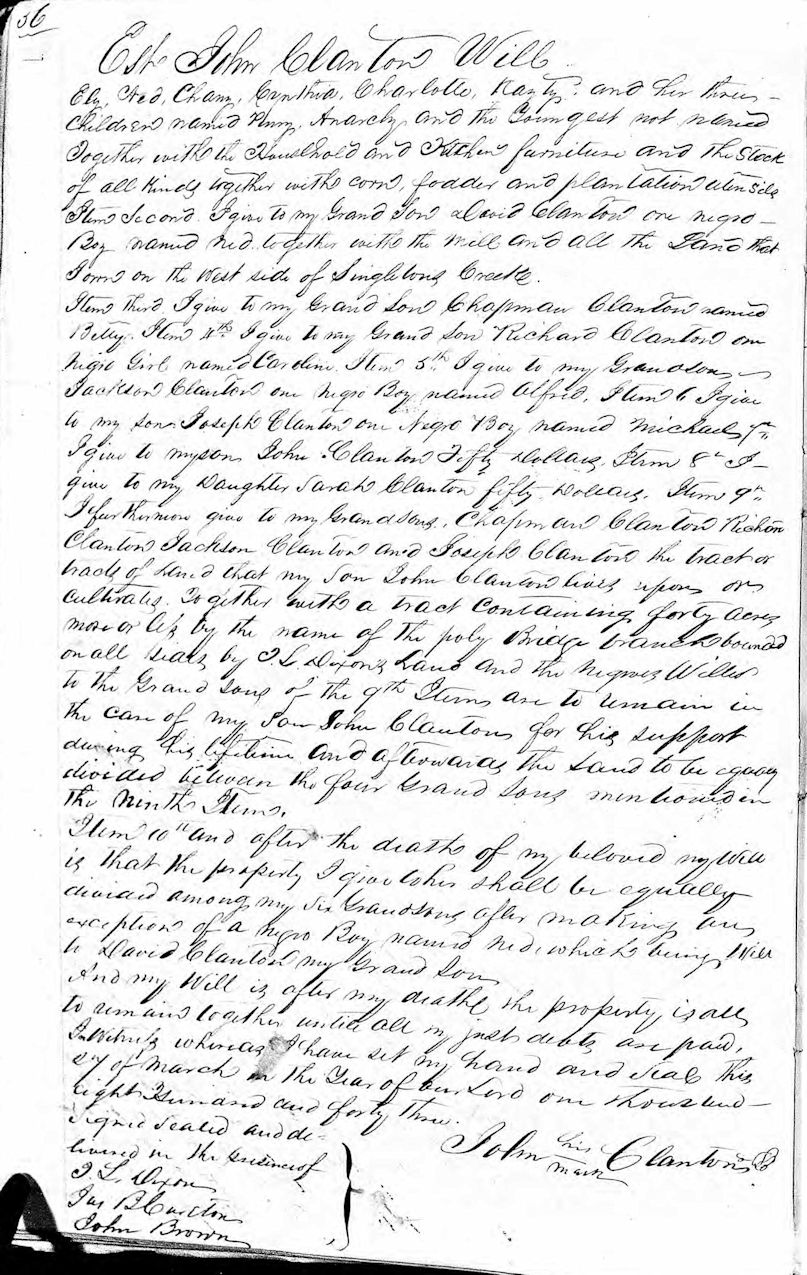 56
Est John Clanton Will
Ely, Ned, Chany, Cynthia, Charlotte, Kayty, and her three
Children named Anarchy and the Youngest not named
Together with the Household and Kitchen furniture and the Stock
of all Kinds together with corn, fodder and plantation utensils
Item Second. I give to my Grand Son David Clanton one negro
Boy named Ned together with the Mill and all the Land that
I own on the West side of Singletons Creek.
Item third I give to my Grand Son Chapman Clanton named
Betty. Item 4th I give to my Grand Son Richard Clanton one
Negro Girl named Caroline. Item 5th I give to my Grandson
Jackson Clanton one Negro Boy named Alfred, Item 6 I give
to my son Joseph Clanton one Negro Boy named Michael, 7th
I give to my son John Clanton Fifty Dollars, Item 8th I
give to my Daughter Sarah Clanton fifty Dollars. Item 9th
I furthermore give to my Grandsons, Chapman Clanton
Clanton Jackson Clanton and Joseph Clanton the tract or
tracts of Land that my Son John Clanton lives upon or
cultivates. Together with a tract containing forty acres
more or less by the name of the poly Bridge branch bound
on all sides by T. L. Dixons Land and the Negroes Willed
to the Grand sons of the 9th Item are to remain in
the care of my Son John Clanton for his support
during his lifetime and afterwards the Land to be
divided between the four Grand Sons mentioned in
the Ninth Item.
Item 10th and after the death of my beloved my Will
is that the property I give to her shall be equally
divided among my Six Grandsons after making an
exception of a Negro Boy named Ned, which being Will
to David Clanton my Grand Son
And my Will is after my death the property is all
to remain together until all my just debts are paid,
In Witness whereas I have set my hand and Seal this
of March in the Year of our Lord one thousand
eight Hundred and forty three.
Signed Sealed and de-
livered in the presence of
John his mark Clanton
T. L. Dixon
Jas B Cureton
John Brown